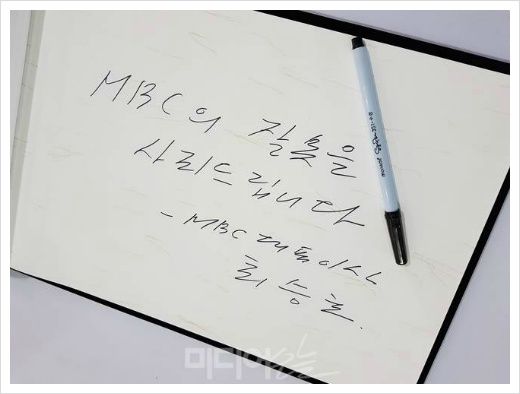 MBC의 잘못을
사죄드립니다
- MBC 대표이사
최승호.
미디어오늘